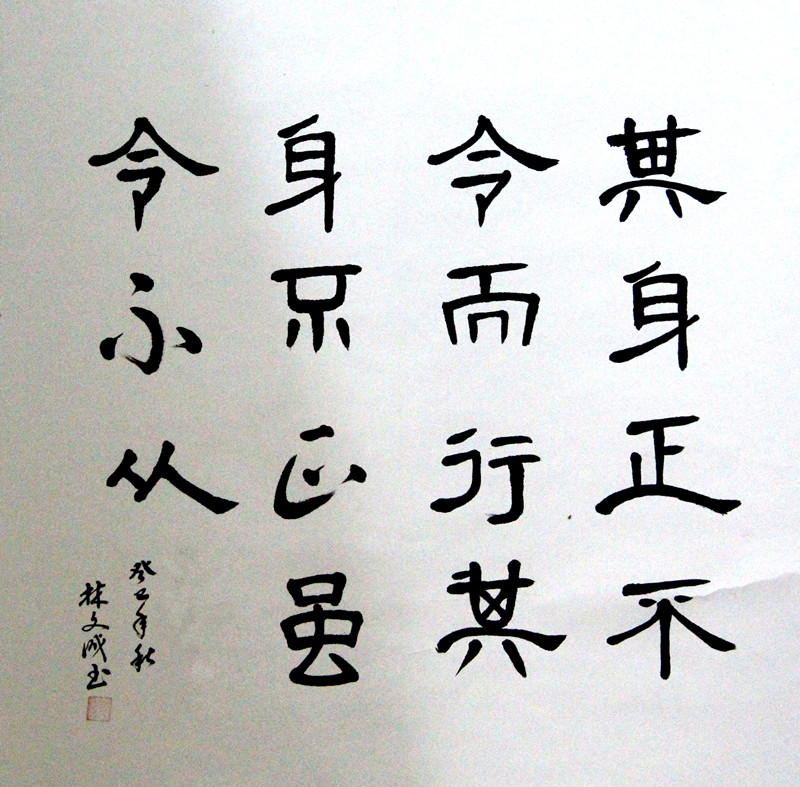 其身正不
令而行其
身不正虽
令不从
癸巳年秋
林文成书